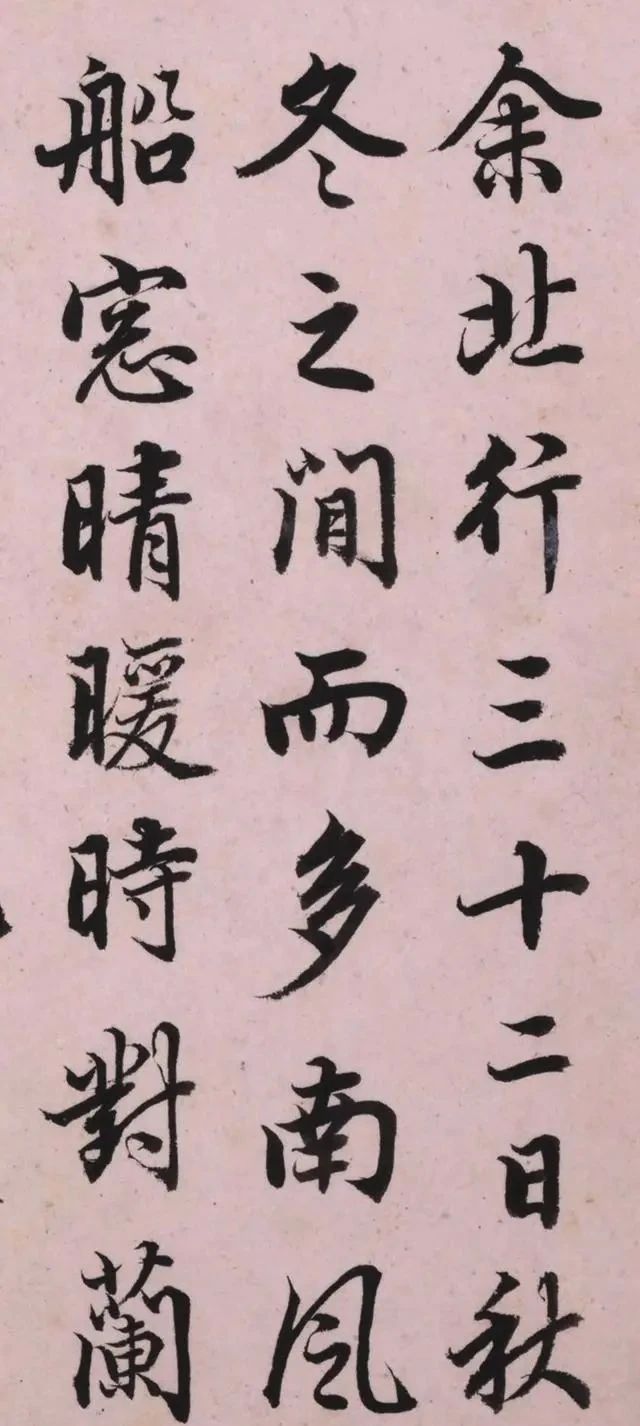 余北行三十二日秋
冬之間而多南風
船窓晴暖時對蘭